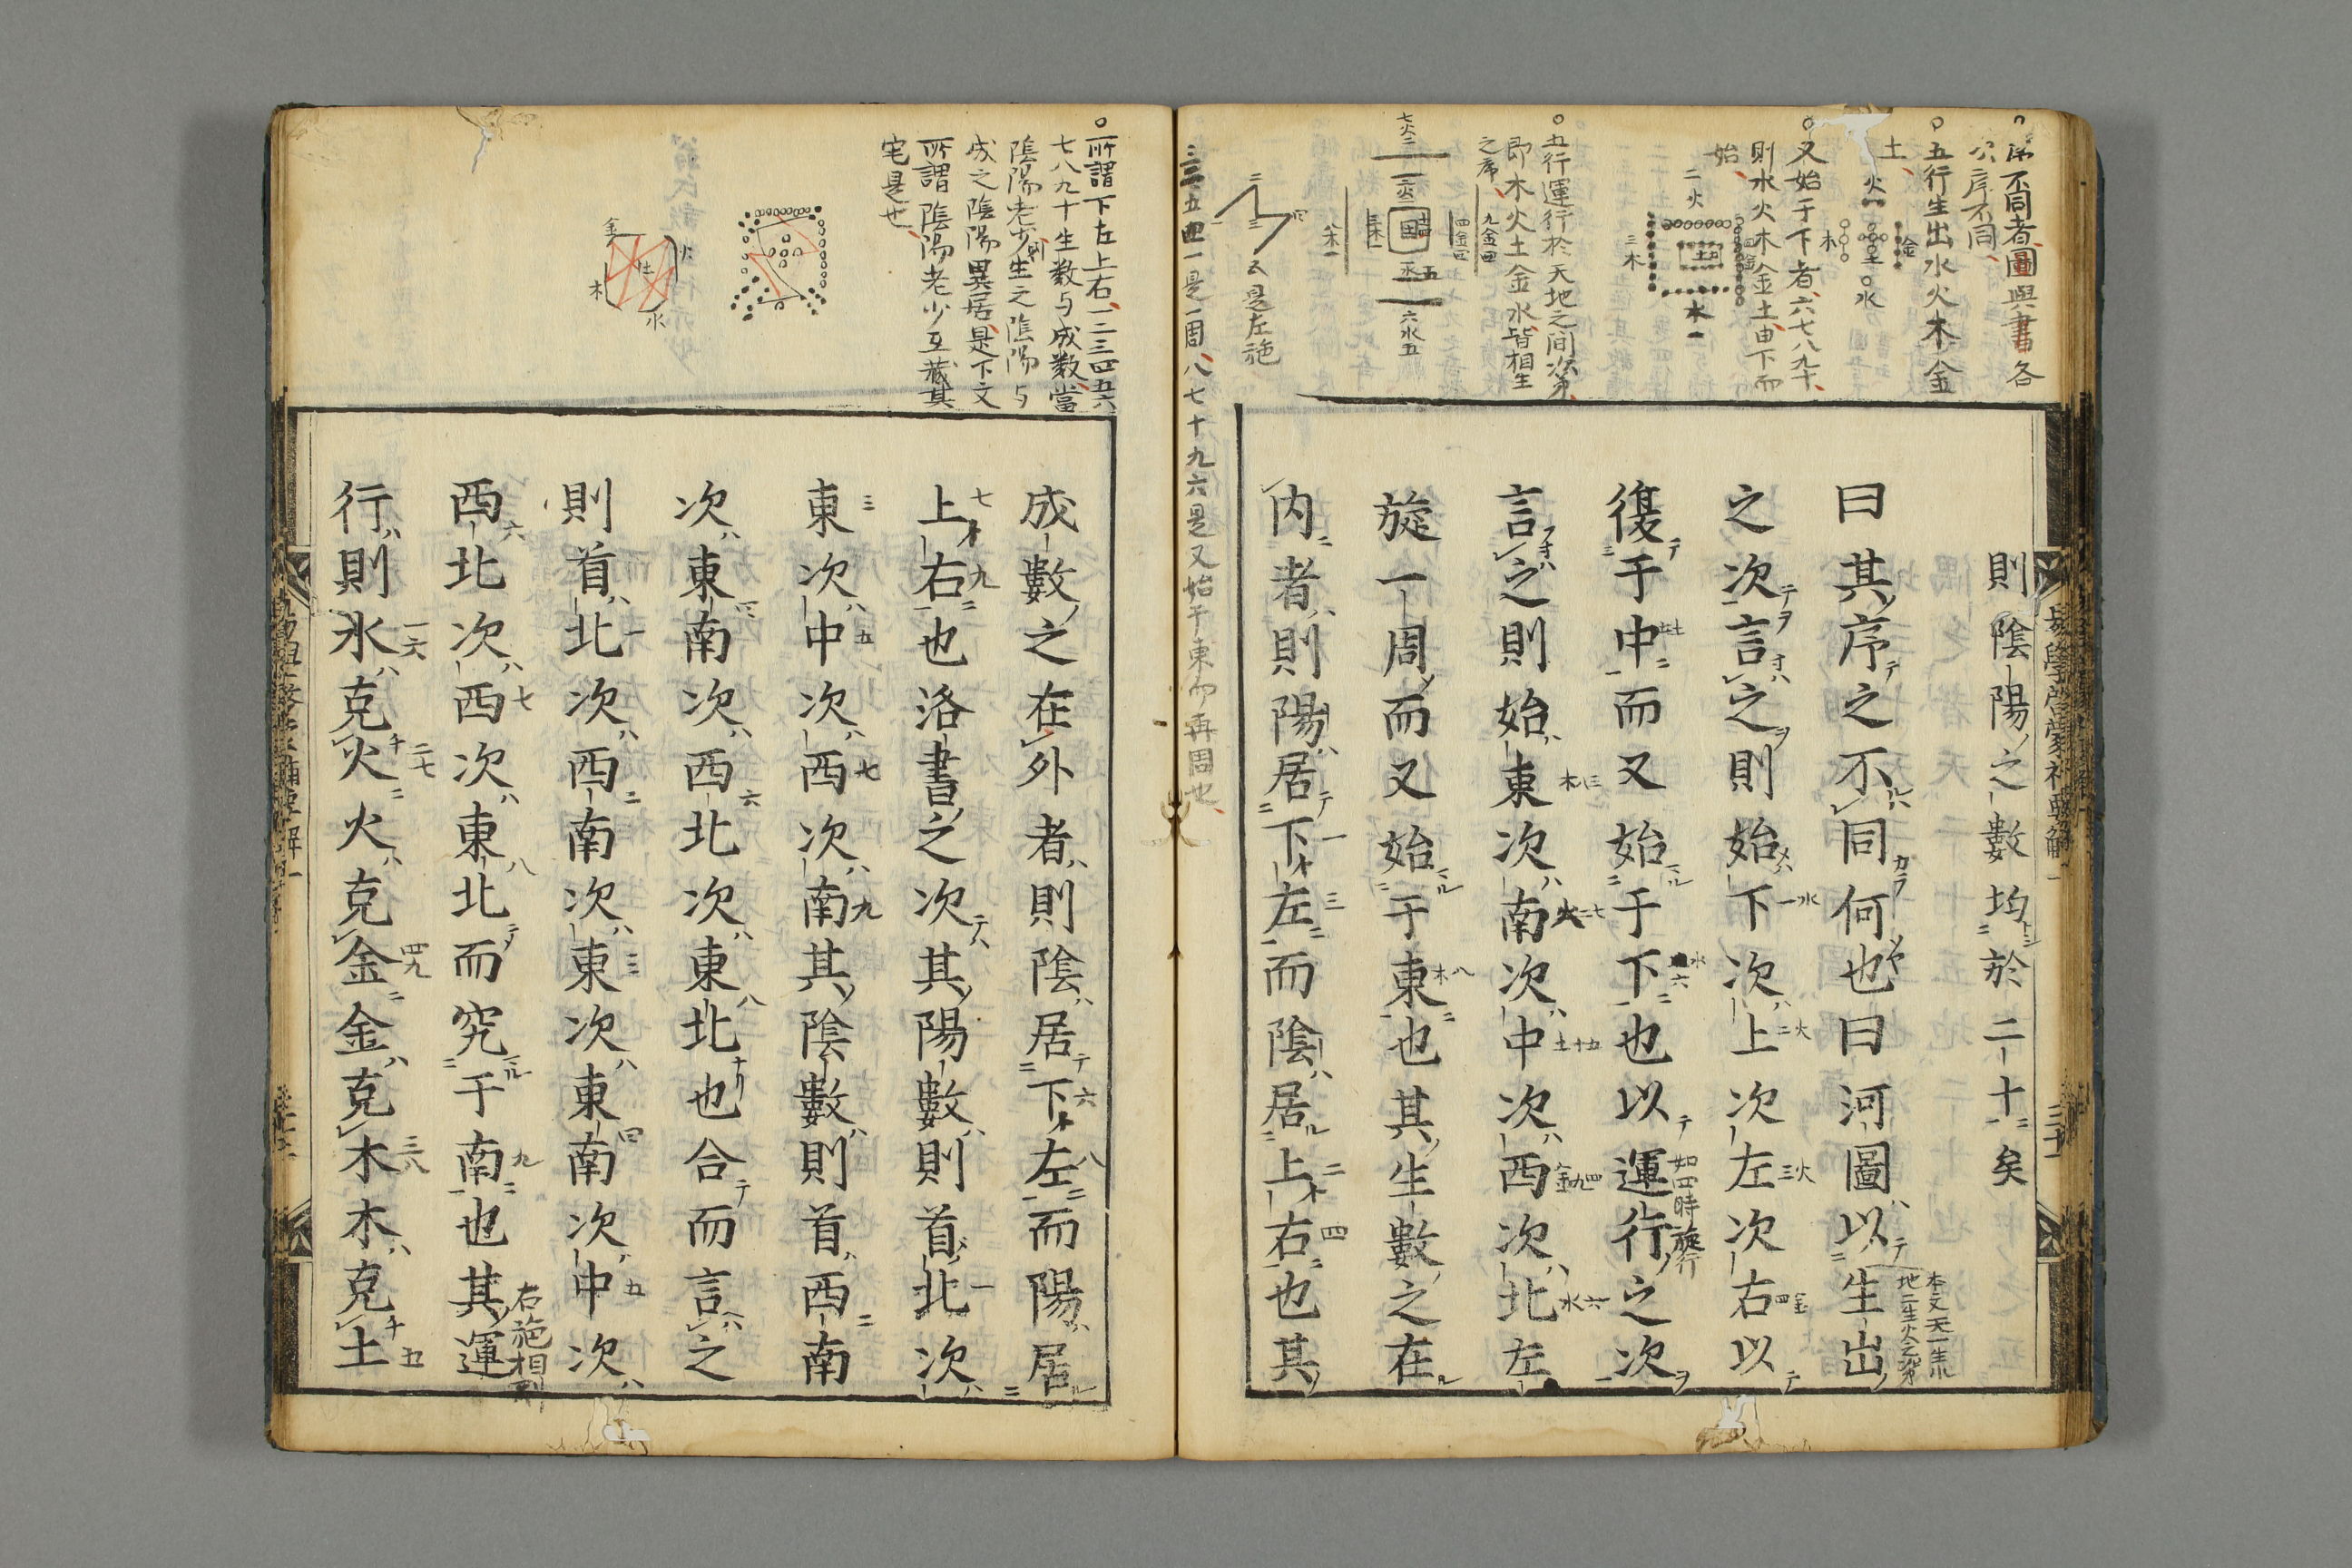 不同者圖與書各
次序不同
五行生出水火木金
土
火二
金
木
土
水
又始于下者六七八九十
則水火木金土由下而
始
二火
三木
水一
五行運行於天地之間次第
即木火土金水皆相生
之序
七火二
六水五
五是左旋
五四一是一周八七十九六是又始于東而再周也
則陰陽之數均於二十矣
曰其序之不同何也曰河圖以生出
之次言之則始下次上次左次右以
復于中而又始于下也以運行之次
言之則始東次南次中次西次北左
旋一周而又始于東也其生數之在
內者則陽居下左而陰居上右也其
本文天一生水
地二生火之次第
如四時旋行
所謂下左上右一二三四五六
七八九十生數与成數當
陰陽老少則生之陰陽与
成之陰陽異居是下文
所謂陰陽老少互藏其
宅是也
金
火
土
木
水
成數之在外者則陰居下左而陽居
上右也洛書之次其陽數則首北次
東次中次西次南其陰數則首西南
次東南次西北次東北也合而言之
則首北次西南次東次東南次中次
西北次西次東北而究于南也其運
行則水克火火克金金克木木克土
右旋相剋